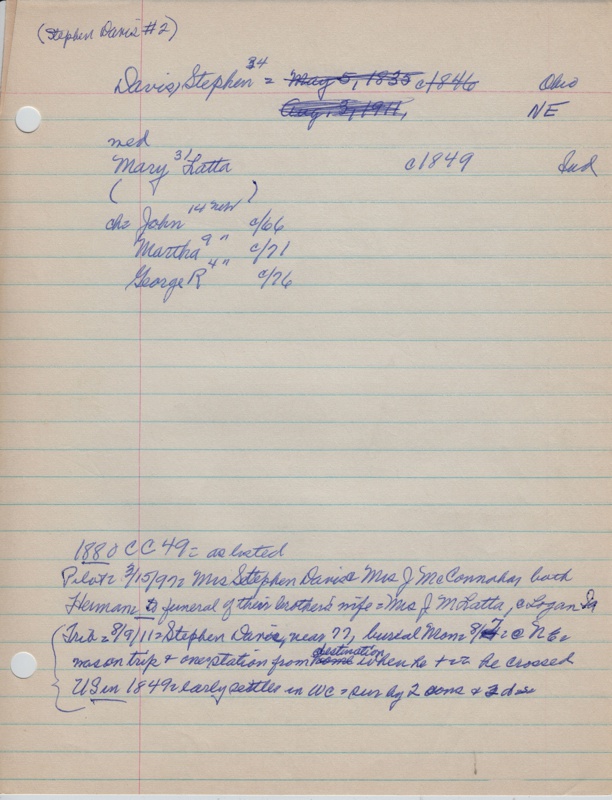 (Stephen Davis #2)
Davis, Stephen 34 = May 5, 1835 c1846 Ohio
Aug. 3, 1911, NE
med
Mary 31 Latta c1849 Ind
( )
ch= John 14 new c/66
Martha 9 " c/71
George R 4 " c/76
1880 CC 49 = as listed
Pilot = 3/15/97 = Mrs Stephen Davis & Mrs J McConnahay both
Herman to funeral of their brother's wife = Mrs J M Latta, @ Logan Ia
(Trib = 8/9/11 = Stephen Davis, near 77, burial Mon = 8/7 = @ NE =
was on trip & one station from home destination when he
he crossed
US in 1849 = early settler in WC = sur by 2 sons & 3 d =